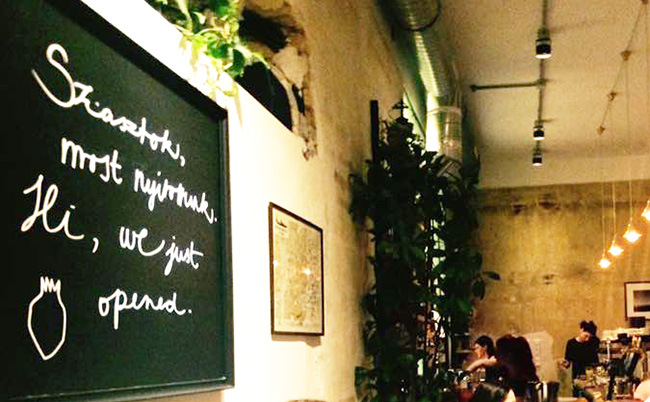 Sziasztok,
most nyitottunk.
Hi, we just
opened.